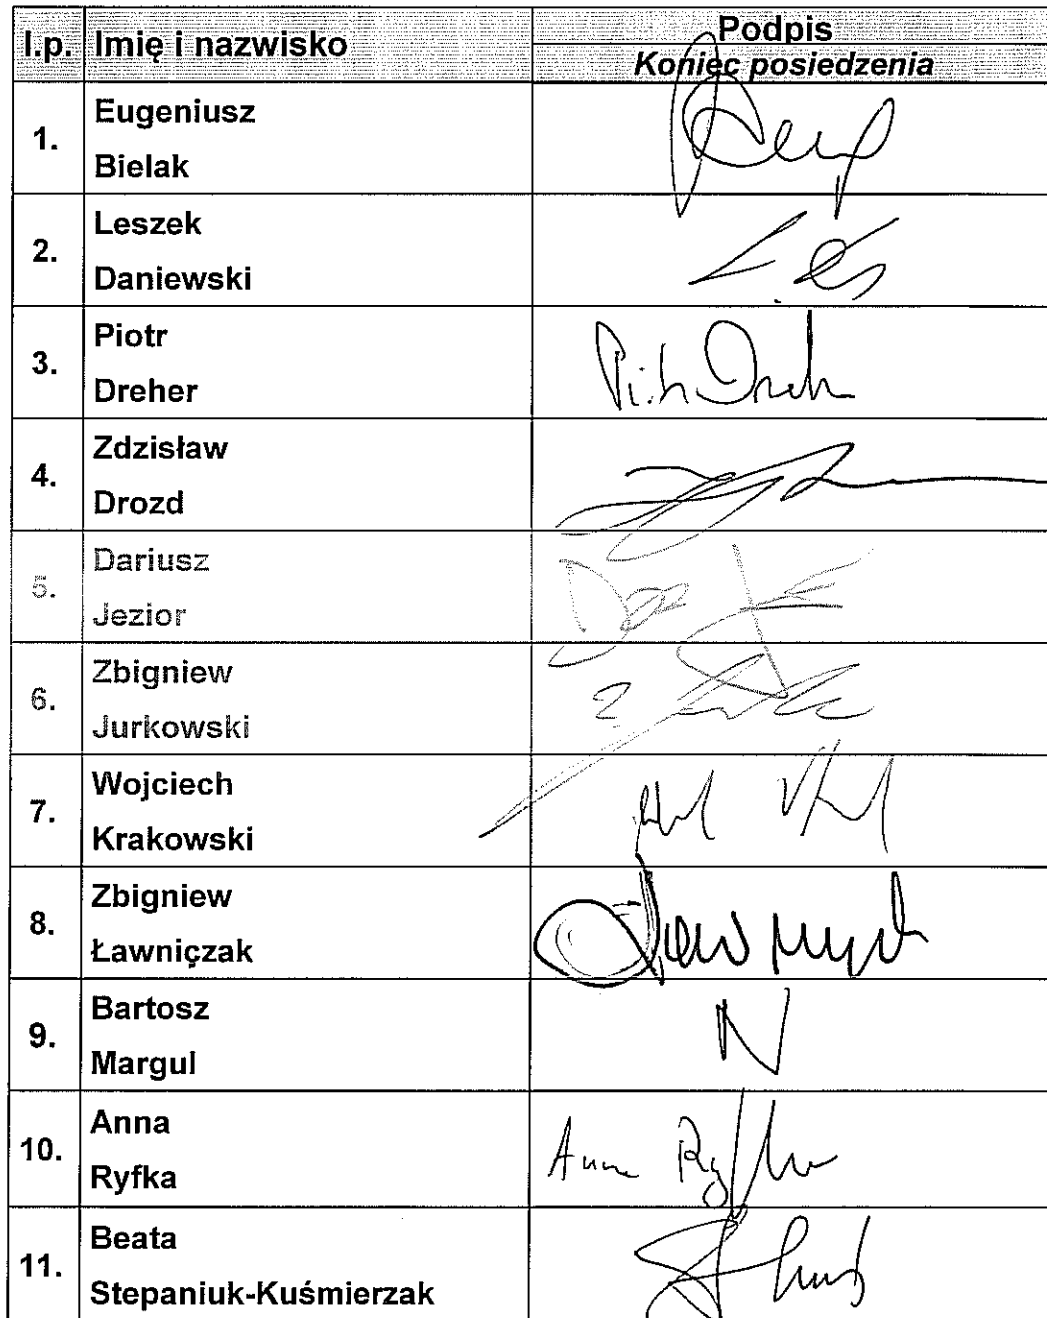 l.p. Imię i nazwisko Podpis
Koniec posiedzenia
1. Eugeniusz
Bielak
2. Leszek
Daniewski
3. Piotr
Dreher
4. Zdzisław
Drozd
5. Dariusz
Jezior
6. Zbigniew
Jurkowski
7. Wojciech
Krakowski
8. Zbigniew
Ławniçzak
9. Bartosz
Margul
10. Anna
Ryfka
Anna Ryfka
11. Beata
Stepaniuk-Kuśmierzak